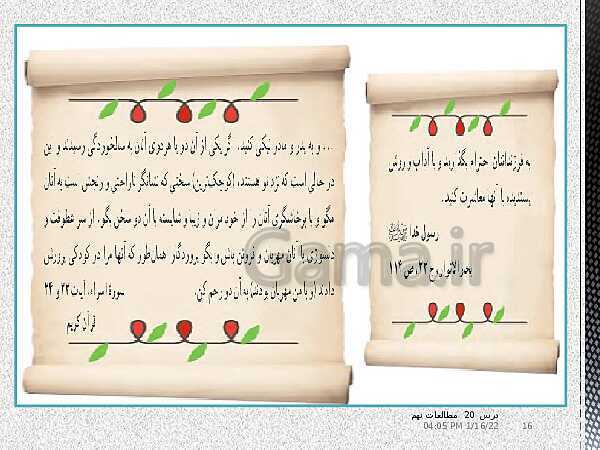 به فرزندانتان احترام بگذارید و با آداب و روش
پسندیده با آنها معاشرت کنید.
رسول خدا ﷺ
بحارالانوار، ج ۲۳، ص ۱۱۴
... و به پدر و مادر نیکی کنید. گر یکی از آن دو یا هردوی آنان به سالخوردگی رسیدند و این
در حالی است که نزد تو هستند، (کوچک‌ترین) سخنی که نشانگر ناراحتی و رنجش است به آنان
مگو و با پرخاشگری آنان را از خود مران و زیبا و شایسته با آن دو سخن بگو. از سر عطوفت و
دلسوزی با آنان مهربان و فروتن باش و بگو پروردگارا همان‌طور که آنها مرا در کودکی پرورش
دادند او با من مهربان بودند، به آن دو رحم کن.
سورهٔ اسراء، آیات ۲۳ و ۲۴
قرآن کریم
Gama.ir
درس 20 مطالعات نهم
04:05 PM 1/16/22
16